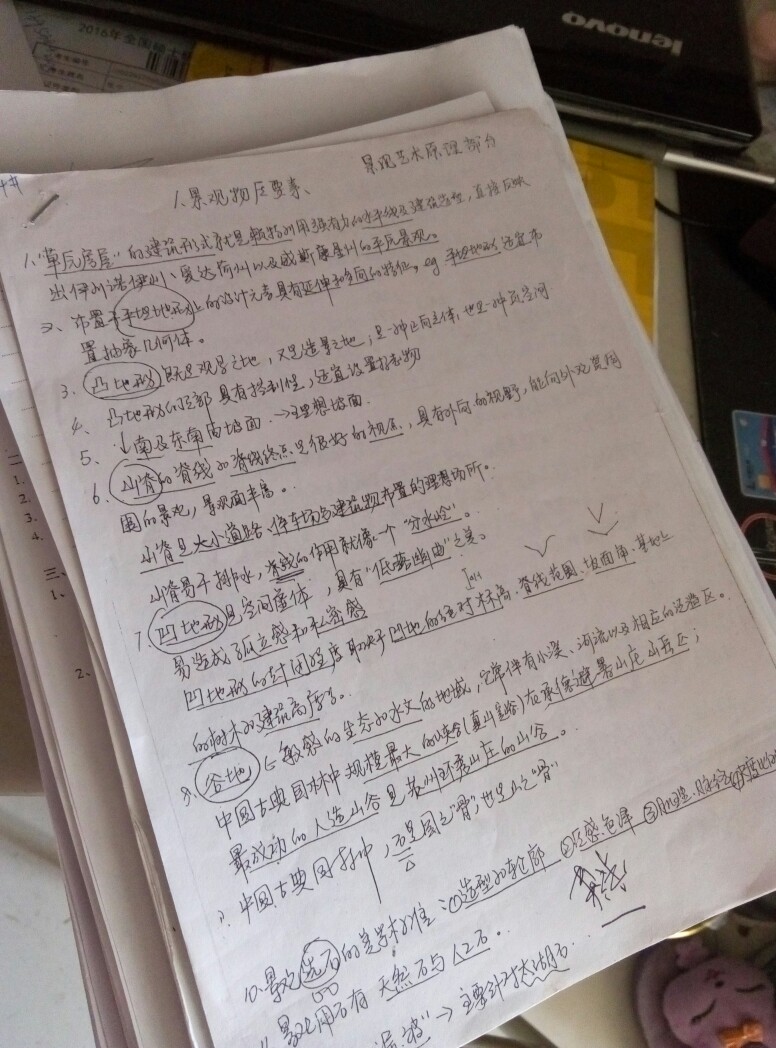 lenovo
2016年全国硕士
景观艺术原理部分
1. 景观物质要素、
1. "草原房屋"的建筑形式就是赖特利用强有力的水平线及建筑造型,直接反映
出伊利诺伊州、爱达荷州以及威斯康星州的平原景观。
2、布置于平坦地形上的设计元素具有延伸和多向的特征。eg 平坦地形适宜布
置抽象几何体。
3. 凸地形既是观景之地,又是造景之地;是一种正向实体,也是一种负空间
4、凸地形的顶部具有控制性,适宜设置标志物
5、↓南及东南向坡面 → 理想坡面.
6、山脊的脊线和脊线终点是很好的视点,具有外向的视野,能向外观赏周
围的景观,景观面丰富。
山脊是大小道路、停车场与建筑物布置的理想场所。
山脊易于排水,脊线的作用就像一个"分水岭"。
7、凹地形是空间虚体,具有"低藏幽曲"之美。
易造成孤立感和私密感
凹地形的封闭程度取决于凹地的绝对标高、脊线范围、坡面角、基地上
的树木和建筑高度等。
8、谷地 是敏感的生态和水文的地域,它常伴有小溪、河流以及相应的泛滥区。
中国古典园林中规模最大的峡谷(真山)在承德避暑山庄山岳区;
最成功的人造山谷是苏州环秀山庄的山谷。
9. 中国古典园林中,石是园之"骨",也是山之"骨"
10. 景观选石的美学标准:①造型和轮廓 ②质感色泽 ③肌理、脉络
11. 景观用石有天然石与人工石。
→ 主要针对太湖石.